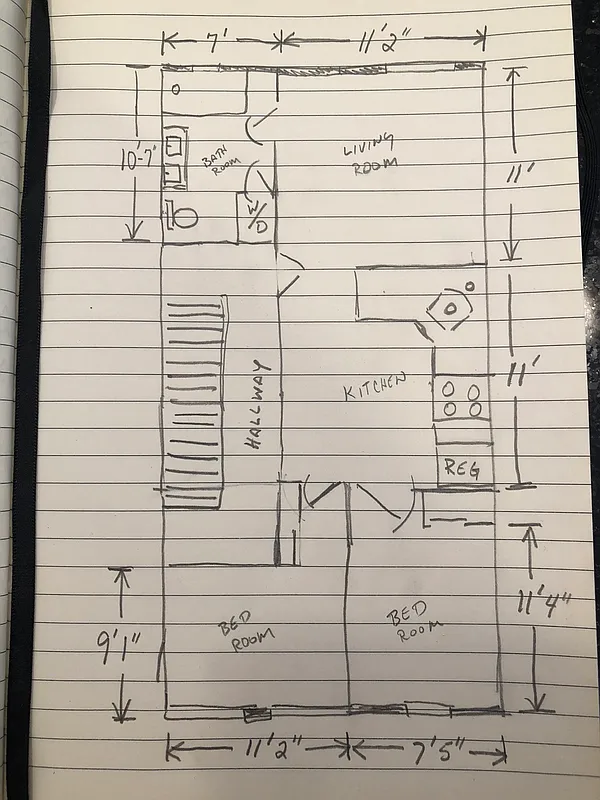 7'
11'2"
10'-7"
BATH
ROOM
LIVING
ROOM
11'
W/D
HALLWAY
KITCHEN
11'
REG
9'1"
BED
ROOM
BED
ROOM
11'4"
11'2"
7'5"